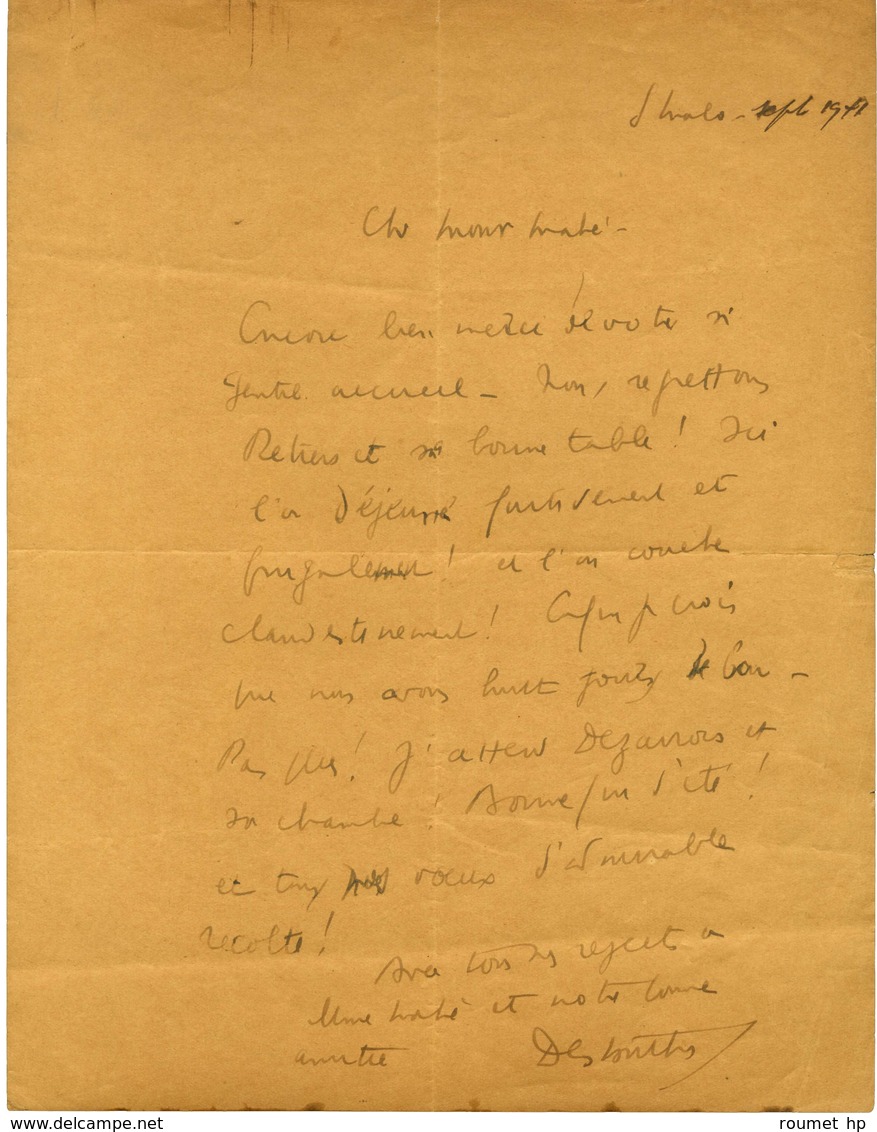 St Malo - sept 1941
Cher Monsr Mahé -
Encore bien merci de votre si
gentil accueil - Nous regrettons
Retiers et sa bonne table ! Ici
l'on déjeune furtivement et
frugalement ! et l'on couche
clandestinement ! Enfin je crois
que nous avons huit jours de bon -
Pas plus ! J'attend Dezarrois et
sa chambre ! Bonne fin d'été !
et tous nos vœux d'admirable
récolte !
Avec tous nos respects a
Mme Mahé et notre bonne
amitié
www.delcampe.net
roumet hp